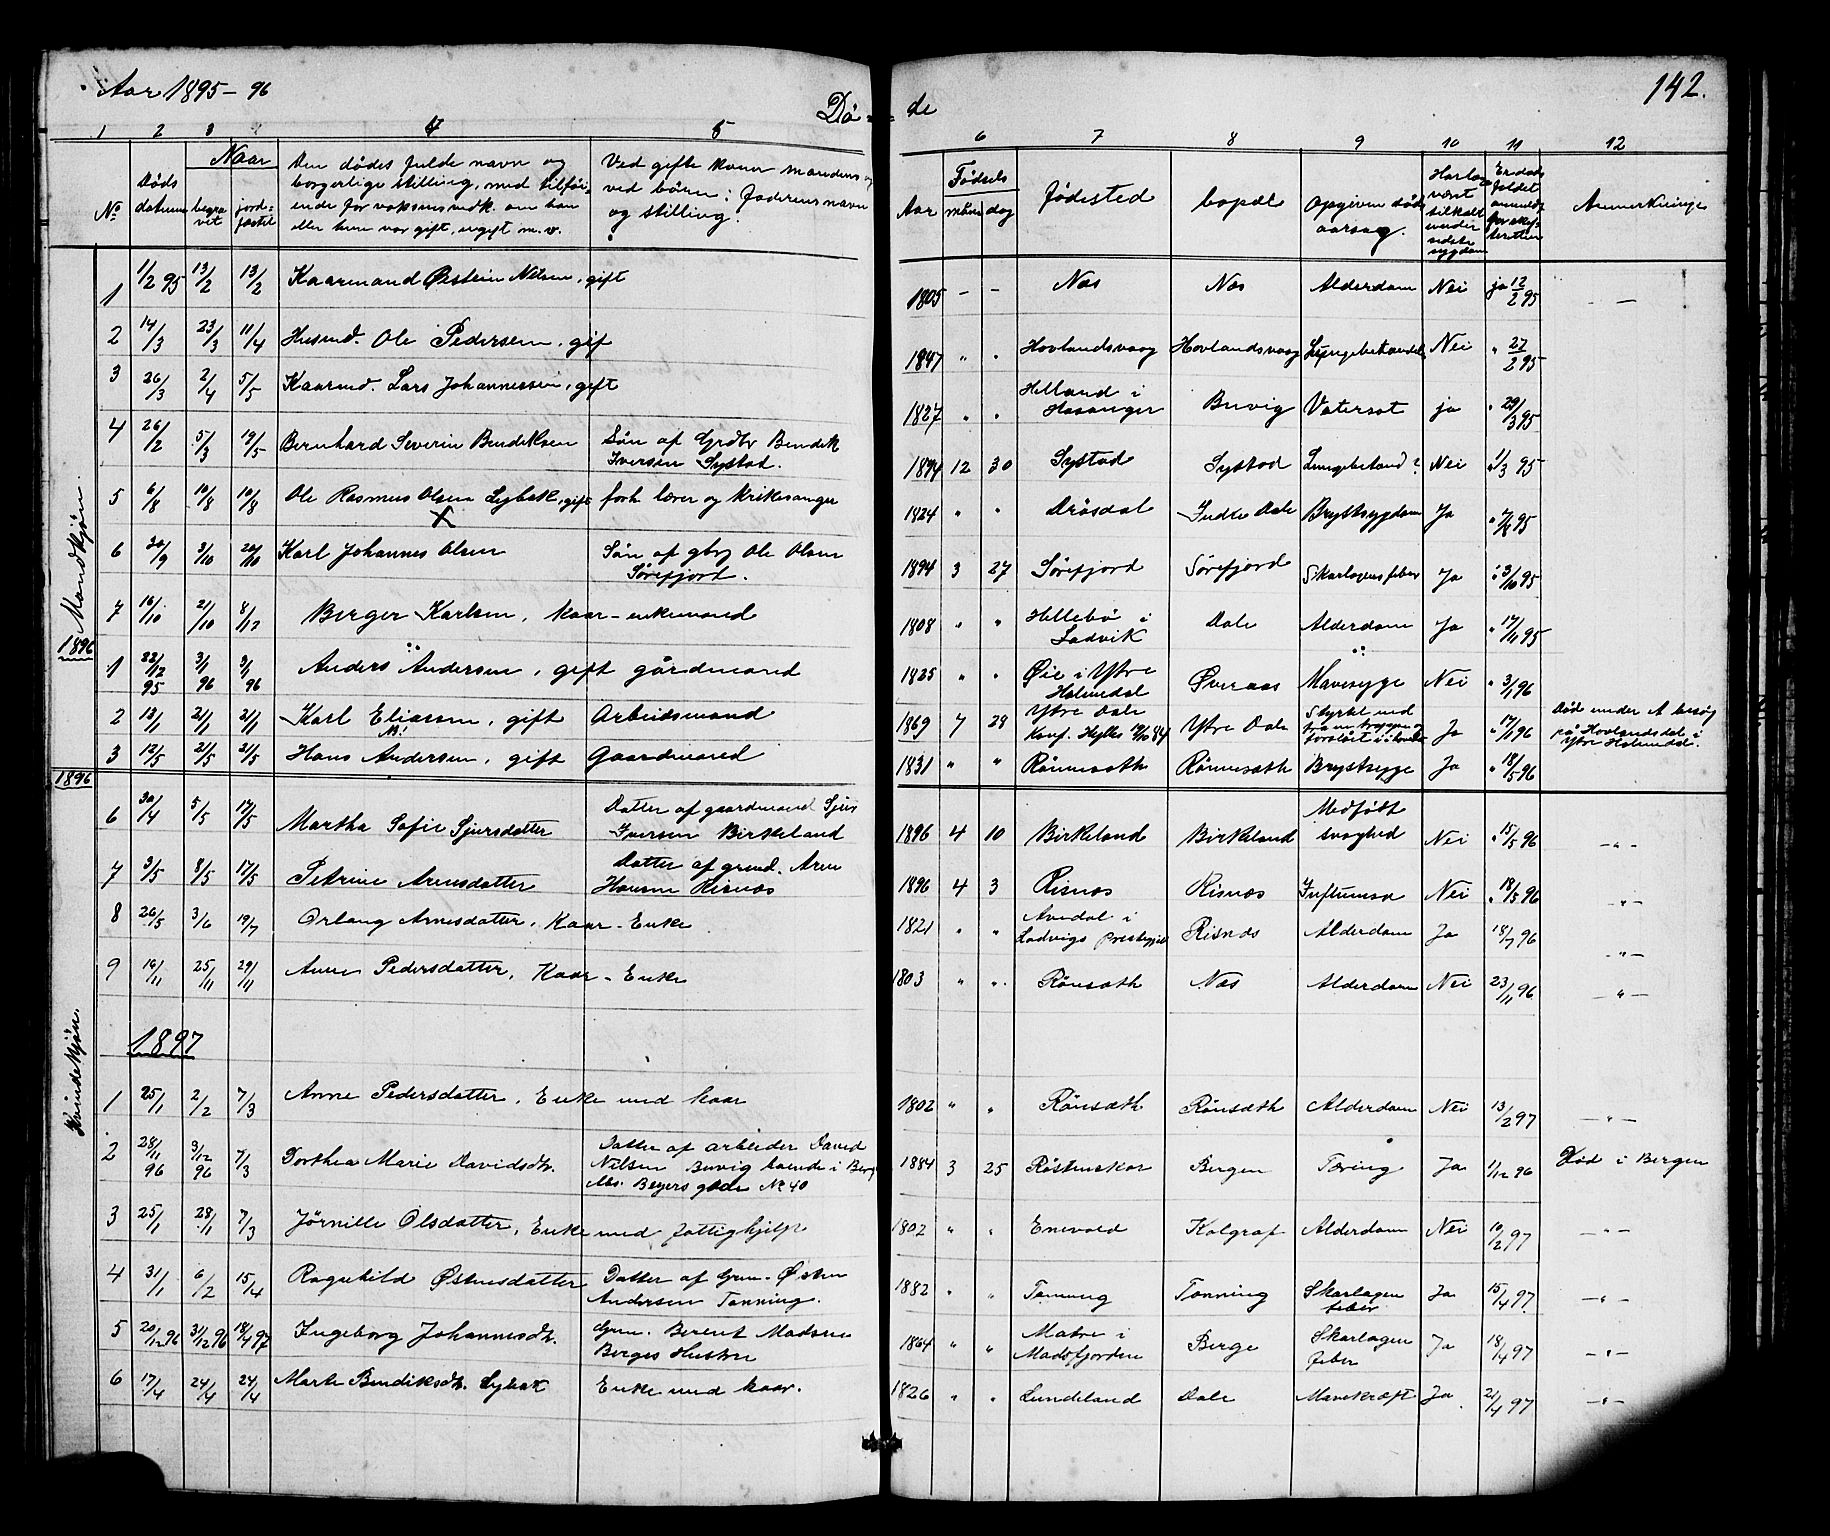 Aar 1895-96
Dø - de
142.
1 2 3 4 5 6 7 8 9 10 11 12
No
Døds datum
Naar
begravet
jordfæstet
Den dødes fulde navn og
borgerlige stilling, med tilføi-
ende for voksnes vedk. om han
eller hun var gift, ugift m. v.
Ved gifte koner mandens og
ved børn: faderens navn
og stilling.
Aar
Fødsels
maan dag
Fødested
bopæl
Opgiven døds
aarsag.
Har læge
været
tilkaldt
under
sidste
sygdom
Er døds
faldet
anmeldt
for skif-
teretten
Anmerkninger
Mandkjøn.
1 1/2 95 13/2 13/2 Kaarmand Østein Nilsen, gift 1805 - - Næs Næs Alderdom Nei ja 12/2 95 - -
2 14/3 23/3 11/4 Husmd. Ole Pedersen, gif 1847 " " Hovlandsvaag Hovlandsvaag Lungebetændelse Nei " 27/2 95
3 26/3 2/4 5/5 Kaarmd. Lars Johannessen, gift 1827 " " Helland i
Masanger Buvig Vatersot ja " 29/3 95
4 26/2 5/3 19/5 Bernhard Severin Bendiksen Søn af Grdbr Bendik
Iversen Systad. 1894 12 30 Systad Systad Lungebetænd? Nei " 1/3 95
5 6/8 10/8 10/8 Ole Rasmus Olsen Lybæk, gift forh. lærer og kirkesanger 1824 " " Dråsdal Indre Dale Brystsygdom Ja " 95
X
6 30/9 3/10 20/10 Karl Johannes Olsen Søn af gbrg Ole Olsen
Sørefjord. 1894 3 27 Sørefjord Sørefjord Skarlagensfeber Ja " 3/10 95
7 16/10 21/10 8/12 Berger Karlsen, kaar-enkemand 1808 " " Hellebø i
Ladvik Dale Alderdom Ja " 17/11 95
1896
1 22/12 95 3/1 96 3/1 96 Anders Andersen, gift gårdmand 1825 " " Øie i Ytre
Holmedal Øveraas Mavesyge Nei " 3/1 96
2 13/1 21/1 21/1 Karl Eliassen, gift Arbeidsmand 1869 7 29 Ytre Dale
Konf. Hyllestad 84 Ytre Dale Styrtet ned Ja " 17/1 96 Død under et besøg
på Hovlandsdal i
Ytre Holmedal.
3 12/5 21/5 21/5 Hans Andersen, gift Gaardmand 1831 " " Rønnesæth Rønnesæth Brystsyge Ja " 18/5 96
1896
Kvindekjøn.
6 30/4 5/5 17/5 Martha Sofie Sjursdatter Datter af gaardmand Sjur
Iversen Birkeland 1896 4 10 Birkeland Birkeland Medfødt
svaghed Nei " 15/5 96 - " -
7 3/5 8/5 17/5 Petrine Arnesdatter Datter af grmd. Arne
Hansen Risnæs 1896 4 3 Risnæs Risnæs Influensa Nei " 18/5 96 - " -
8 26/5 3/6 19/7 Orlaug Arnesdatter, Kaar-Enke 1821 " " Avedal i
Ladvigs prestegjeld Risnæs Alderdom Ja 18/7 96 - " -
9 16/11 25/11 29/11 Anne Pedersdatter, Kaar-Enke 1803 " " Rønsæth Næs Alderdom Nei 23/11 96 - " -
1897
1 25/1 2/2 7/3 Anne Pedersdatter, Enke med kaar 1802 " " Rønsæth Rønsæth Alderdom Nei 13/2 97 - " -
2 28/11 96 3/12 96 7/3 Dorthea Marie Davidsdtr. Datter af arbeider David
Nilsen Buvig boende i Berg
Abs. Beyers gade No 40 1884 3 25 Bergen Tæring Ja 1/12 96 Død i Bergen
3 25/1 28/1 7/3 Jørnille Olsdatter, Enke med fattighjelp 1802 " " Enevold Kolgrof Alderdom Nei 10/2 97 - " -
4 31/1 6/2 15/4 Ragnhild Østensdatter Datter af Grm. Østen
Andersen Tønning. 1882 " " Tønning Tønning Skarlagen
feber Ja 15/4 97 - " -
5 20/12 96 31/12 96 18/4 97 Ingeborg Johannesdtr. Grm. Berent Madsen
Berges Hustru 1864 " " Matre i
Masfjorden Berge Skarlagen
feber Ja 18/4 97 - " -
6 17/4 24/4 24/4 Marte Bendiksdtr. Lybæk Enke med kaar. 1826 " " Lundeland Dale Mavekræft Ja 21/4 97 - " -